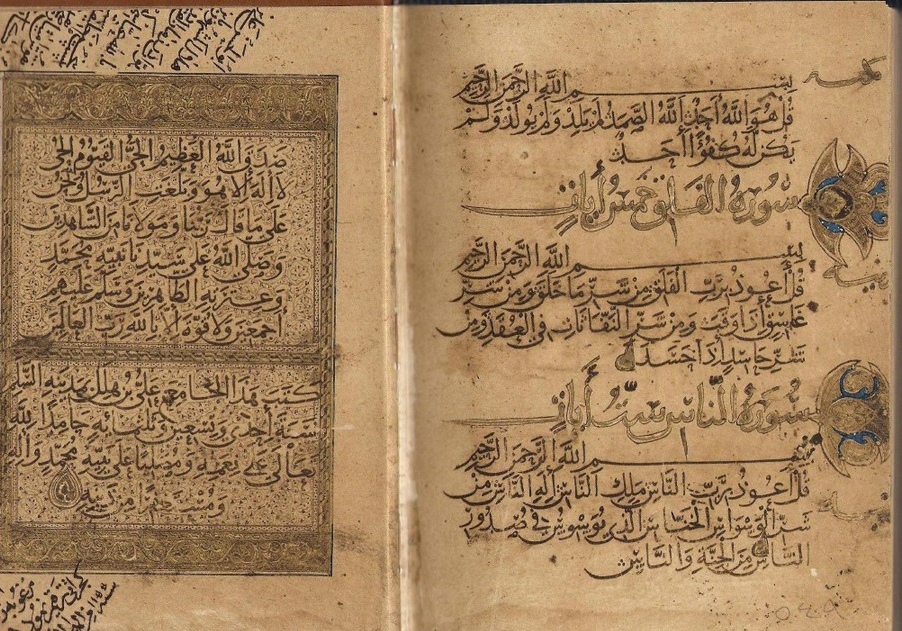 بسم الله الرحمن الرحيم
قل هو الله احد الله الصمد لم يلد ولم يولد ولم
يكن له كفوا احد
سورة الفلق خمس أيات
بسم الله الرحمن الرحيم
قل أعوذ برب الفلق من شر ما خلق ومن شر
غاسق إذا وقب ومن شر النفاثات في العقد ومن
شر حاسد إذا حسد
سورة الناس ست أيات
بسم الله الرحمن الرحيم
قل أعوذ برب الناس ملك الناس إله الناس من
شر الوسواس الخناس الذي يوسوس في صدور
الناس من الجنة والناس
صدق الله العظيم الحي القيوم الذي
لا اله الا هو وبلغت الرسل ونحن
على ما قال ربنا ومولانا من الشاهدين
وصلى الله على سيدنا نبيه محمد
وعترته الطاهرين وسلم عليهم
أجمعين ولا قوة إلا بالله رب العالمين
كتب هذا الجامع علي بن هلال بمدينة السلام
سنة أحدى وتسعين وثلثمائة حامدا لله
تعالى على نعمه ومصليا على نبيه محمد وآله
ومستغفرا من ذنبه